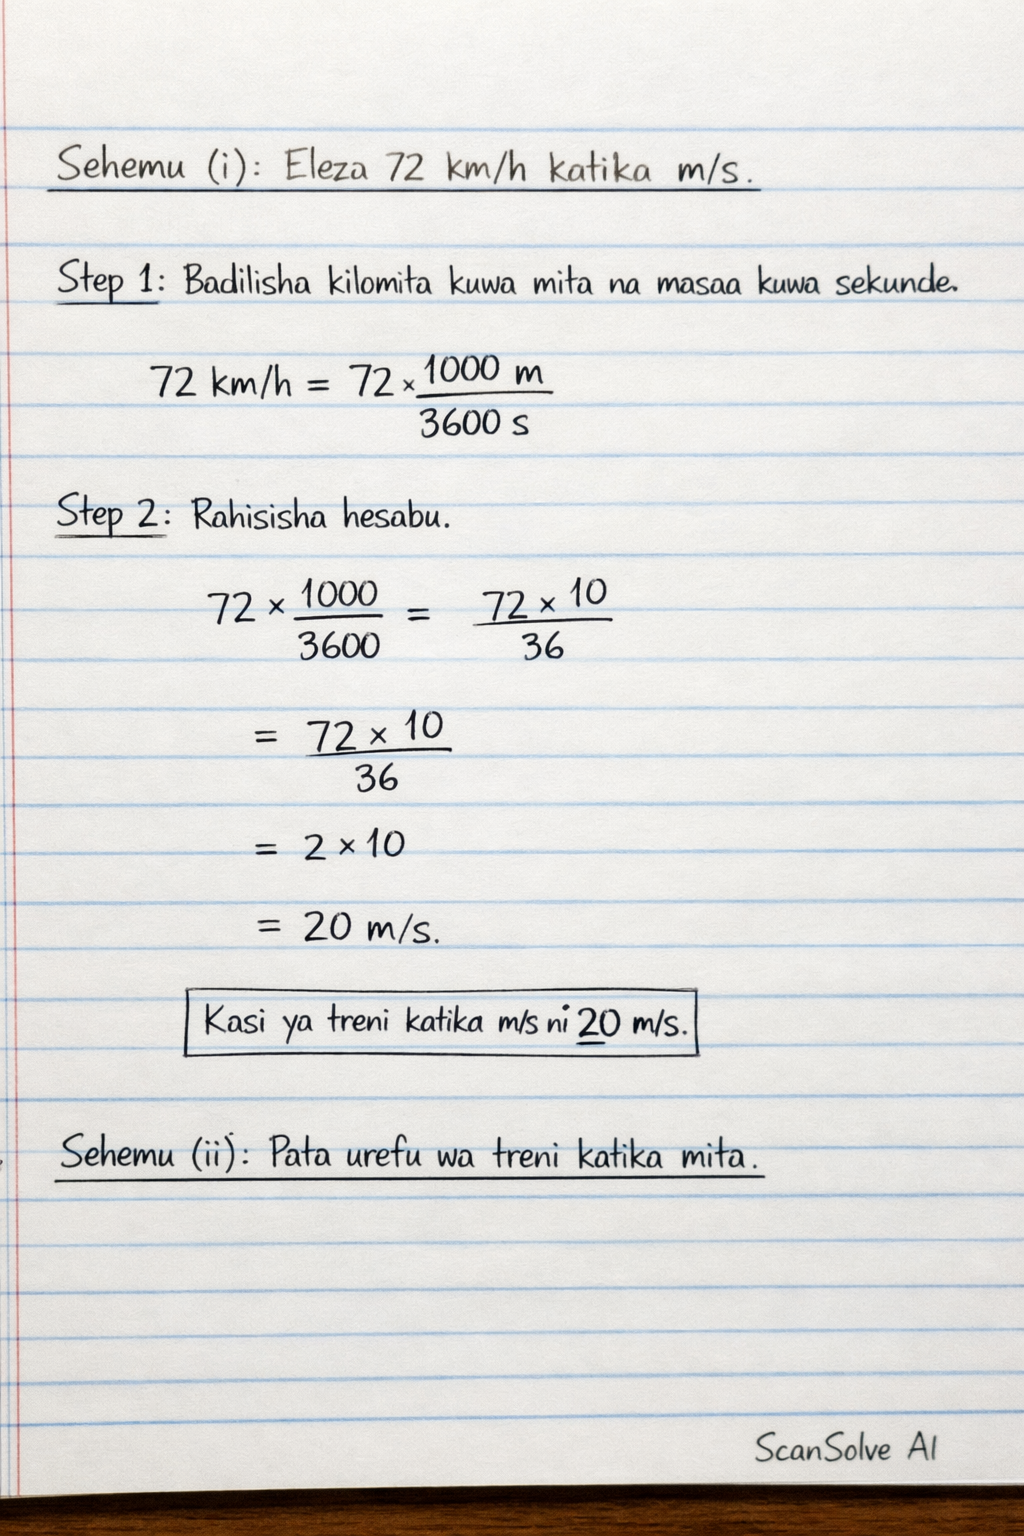 Sehemu (i): Eleza 72 km/h katika m/s.
Step 1: Badilisha kilomita kuwa mita na masaa kuwa sekunde.
72 km/h = 72 × 1000 m / 3600 s
Step 2: Rahisisha hesabu.
72 × 1000 / 3600 = 72 × 10 / 36
= 72 × 10 / 36
= 2 × 10
= 20 m/s.
Kasi ya treni katika m/s ni 20 m/s.
Sehemu (ii): Pata urefu wa treni katika mita.
ScanSolve AI